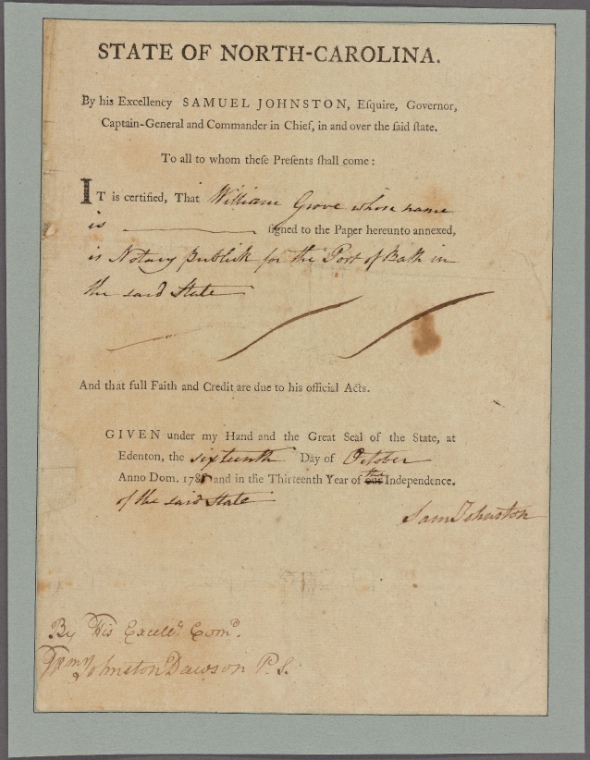 STATE OF NORTH-CAROLINA.
By his Excellency SAMUEL JOHNSTON, Eſquire, Governor,
Captain-General and Commander in Chief, in and over the ſaid ſtate.
To all to whom theſe Preſents ſhall come :
IT is certified, That William Grove whose name
is ſigned to the Paper hereunto annexed,
is Notary publick for the Port of Bath in
the said State
And that full Faith and Credit are due to his official Acts.
GIVEN under my Hand and the Great Seal of the State, at
Edenton, the sixteenth Day of October
the
Anno Dom. 1788 and in the Thirteenth Year of our Independence.
of the said State
Sam Johnston
By His Excelly Comd.
Johnston Dawson P. S.